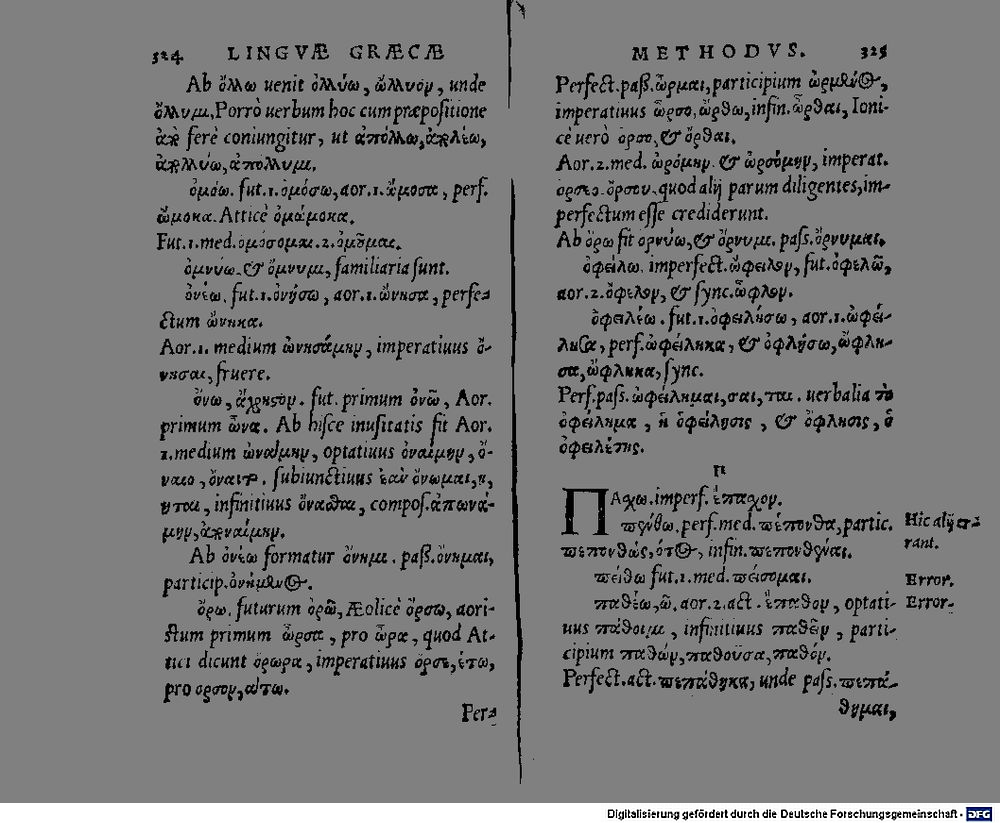 324 LINGVÆ GRÆCÆ
Ab ὄλλω uenit ὀλλύω, ὤλλυον, unde
ὄλλυμι. Porrò uerbum hoc cum præpositione
ἀπὸ ferè coniungitur, ut ἀπόλλω, ἀπολέω,
ἀπολλύω, ἀπόλλυμι.
ὀμόω. fut.1. ὀμόσω, aor.1. ὤμοσα, perf.
ὤμοκα. Atticè ὀμώμοκα.
Fut.1. med. ὀμόσομαι. 2. ὀμοῦμαι.
ὀμνύω. & ὄμνυμι, familiaria sunt.
ὀνέω. fut.1. ὀνήσω, aor.1. ὤνησα, perfe-
ctum ὤνηκα.
Aor.1. medium ὠνησάμην, imperatiuus ὄ-
νησαι, fruere.
ὄνω, ἄχρηστον. fut. primum ὀνῶ, Aor.
primum ὦνα. Ab hisce inusitatis fit Aor.
1. medium ὠνάμην, optatiuus ὀναίμην, ὄ-
ναιο, ὄναιτο. subiunctiuus ἐὰν ὄνωμαι, η,
ηται, infinitiuus ὄνασθαι, compos. ἀπωνά-
μην, ἀποναίμην.
Ab ὀνέω formatur ὄνημι. pass. ὄνημαι,
particip. ὀνήμενος.
ὄρω. futurum ὀρῶ, Æolicè ὄρσω, aori-
stum primum ὦρσα, pro ὦρα, quod At-
tici dicunt ὄρωρα, imperatiuus ὄρσε, έτω,
pro ὄρσον, άτω.
Per-
METHODVS. 325
Perfect. pass. ὦρμαι, participium ὠρμένος,
imperatiuus ὦρσο, ὤρθω, infin. ὦρθαι, Ioni-
cè uerò ὄρσο, & ὄρθαι.
Aor.2. med. ὠρόμην. & ὠρσόμην, imperat.
ὄρσεο. ὄρσου. quod alij parum diligentes, im-
perfectum esse crediderunt.
Ab ὄρω fit ὀρνύω, & ὄρνυμι. pass. ὄρνυμαι.
ὀφείλω. imperfect. ὤφειλον, fut. ὀφελῶ,
aor.2. ὄφελον, & sync. ὦφλον.
ὀφειλέω. fut.1. ὀφειλήσω, aor.1. ὠφεί-
λησα, perf. ὠφείληκα, & ὀφλήσω, ὤφλη-
σα, ὤφληκα, sync.
Perf. pass. ὠφείλημαι, σαι, ται. uerbalia τὸ
ὀφείλημα, ἡ ὀφείλησις, & ὄφλησις, ὁ
ὀφειλέτης.
Π
ΠΑχω. imperf. ἔπαχον.
πένθω. perf. med. πέπονθα, partic.
πεπονθὼς, ότος, infin. πεπονθέναι.
Hic alij er-
rant.
πείθω fut.1. med. πείσομαι.
Error.
παθέω, ῶ. aor.2. act. ἔπαθον, optati-
Error.
uus πάθοιμι, infinitiuus παθεῖν, parti-
cipium παθὼν, παθοῦσα, παθόν.
Perfect. act. πεπάθηκα, unde pass. πεπά-
θημαι,
Digitalisierung gefördert durch die Deutsche Forschungsgemeinschaft - DFG